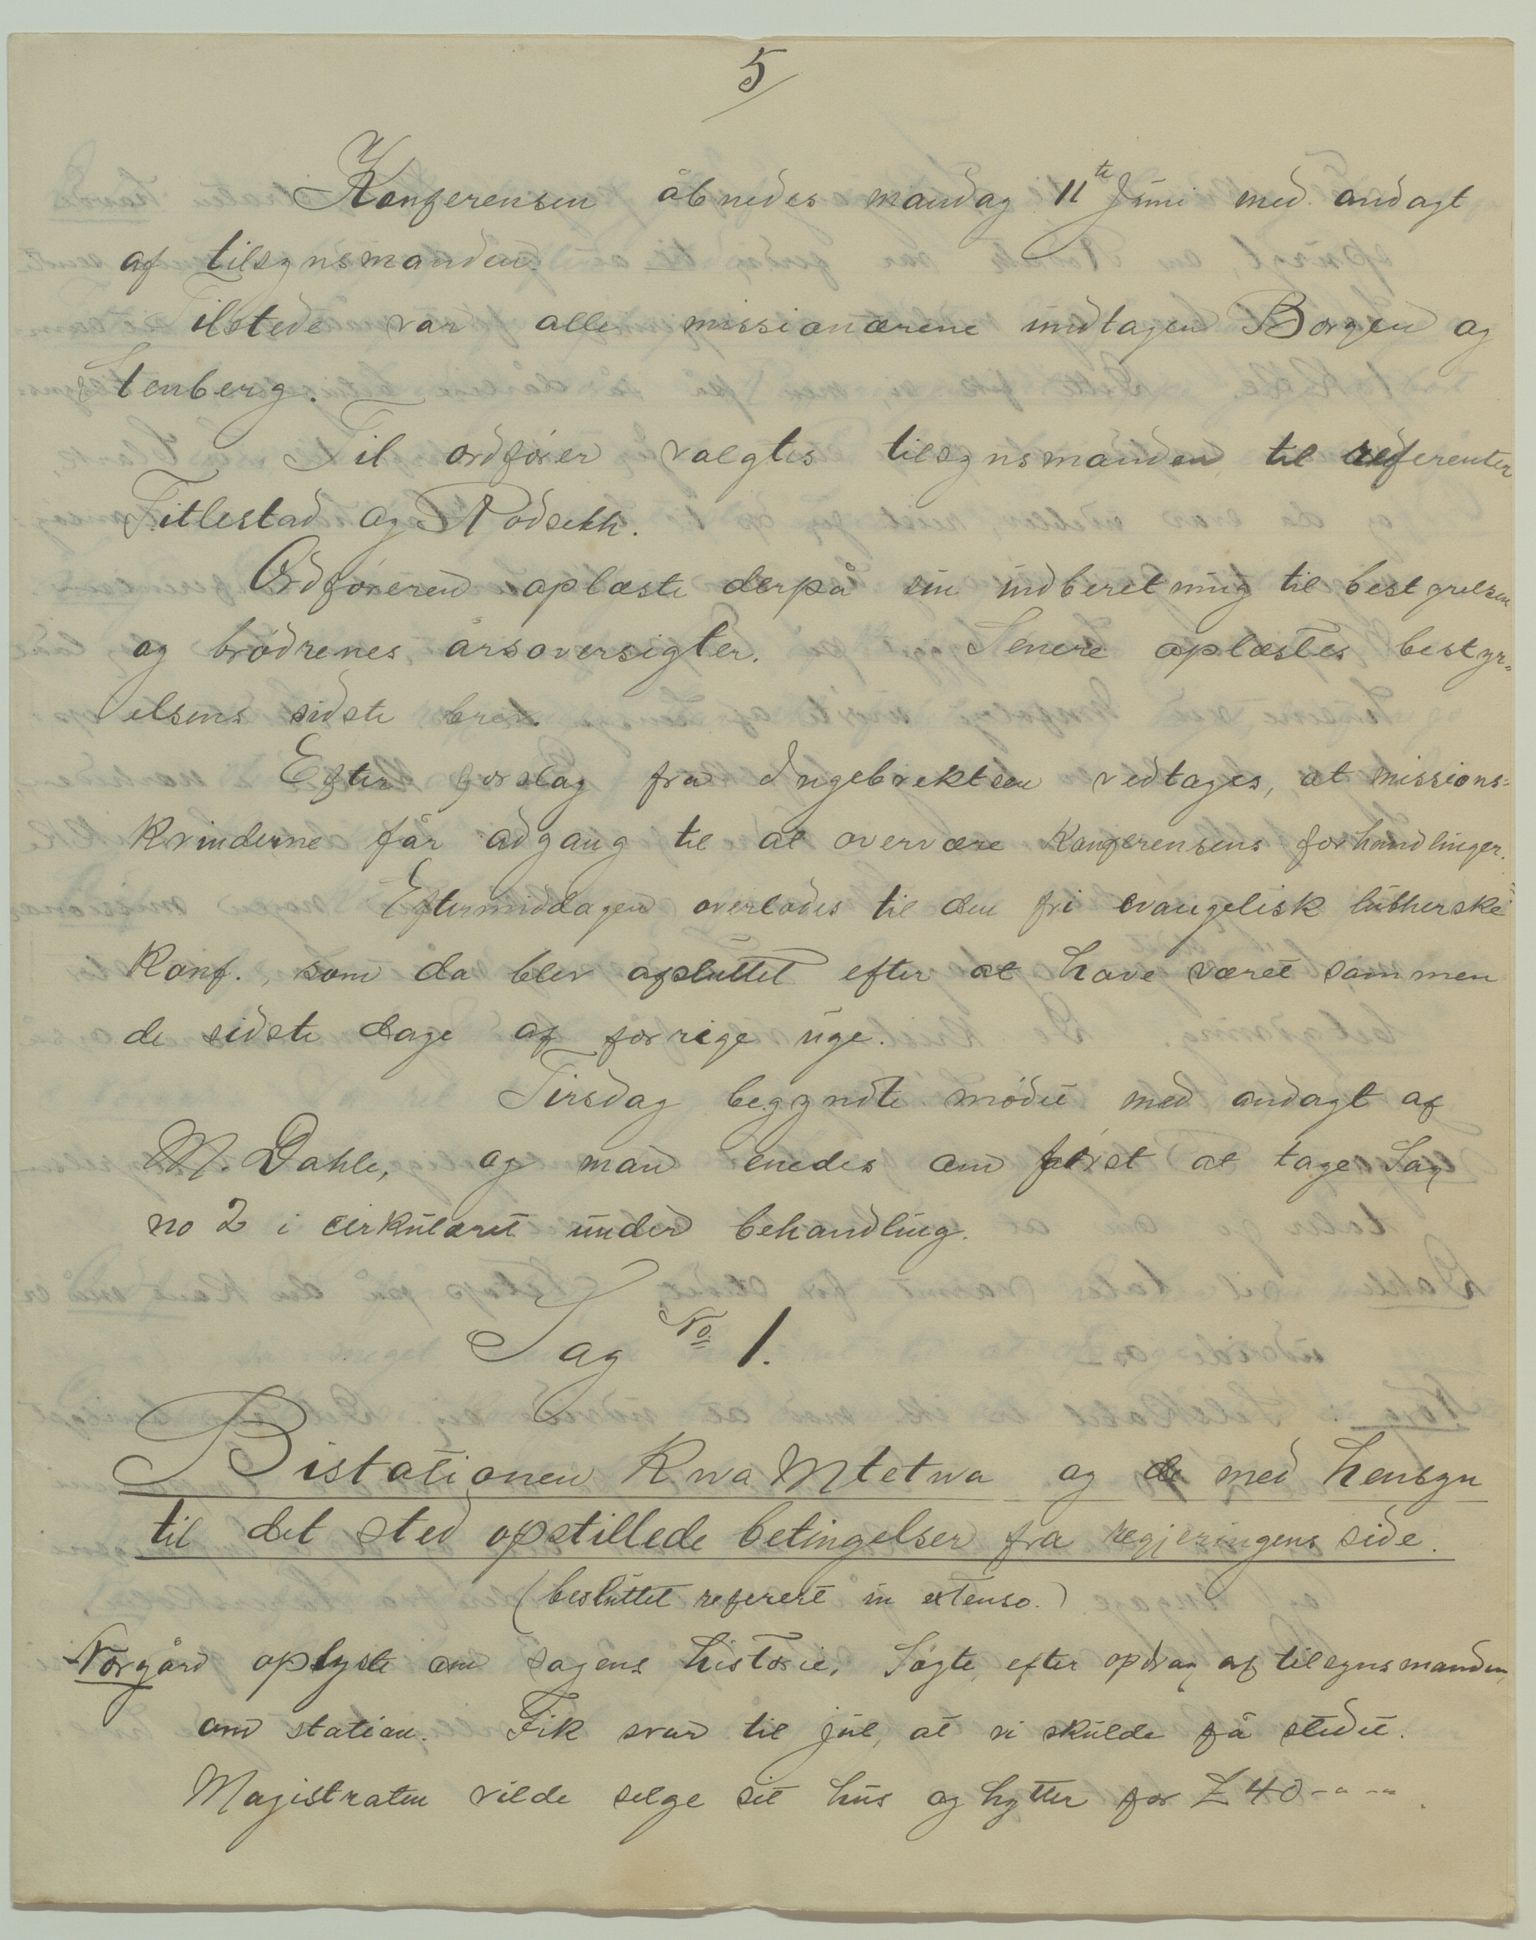 5
Konferensen åbnedes mandag 11te Juni med andagt
af tilsynsmanden.
Tilstede var alle missionærene undtagen Borgen og
Stenberg.
Til ordfører valgtes tilsynsmanden, til referenter
Titlestad og Rødsekh.
Ordføreren oplæste derpå sin indberetning til bestyrelsen
og brødrenes årsoversigter. Senere oplæstes bestyr-
elsens sidste brev.
Efter forslag fra Ingebrektsen vedtages, at missions-
kvinderne får adgang til at overvære Konferensens forhandlinger.
Eftermiddagen overlodes til den fri evangelisk lutherske
Konf., som da blev afsluttet efter at have været sammen
de sidste dage af forrige uge.
Tirsdag begyndte mødet med andagt af
M. Dahle, og man enedes om først at tage Sag
no 2 i cirkulæret under behandling.
Sag No 1.
Bistationen KwaMtetwa og de med hensyn
til det sted opstillede betingelser fra regjeringens side.
(besluttet referert in extenso.)
Norgård oplyste om sagens historie. Søgte, efter opdrag af tilsynsmanden,
om station. Fik svar til jul, at vi skulde få stedet.
Magistraten vilde selge sit hus og hytter for £40-"-"-.